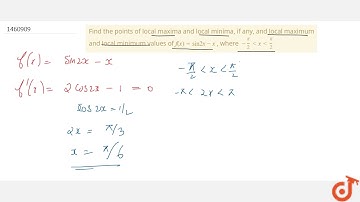 1460909
Find the points of local maxima and local minima, if any, and local maximum
and local minimum values of f(x) = sin2x - x , where -π/2 < x < π/2
f(x) = sin2x - x
f'(x) = 2cos2x - 1 = 0
cos2x = 1/2
2x = π/3
x = π/6
-π/2 < x < π/2
-π < 2x < π